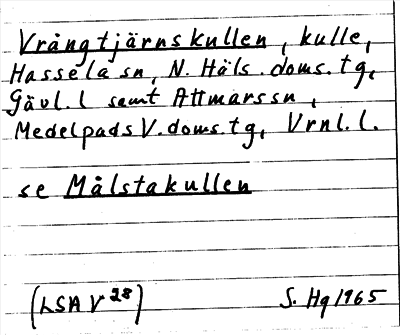 Vrångtjärnskullen, kulle,
Hassela sn, N. Häls. doms. tg,
Gävl. l samt Attmarssn,
Medelpads V. doms. tg, Vrnl. l.
se Målstakullen
(LSA V 28) S. Hg 1965